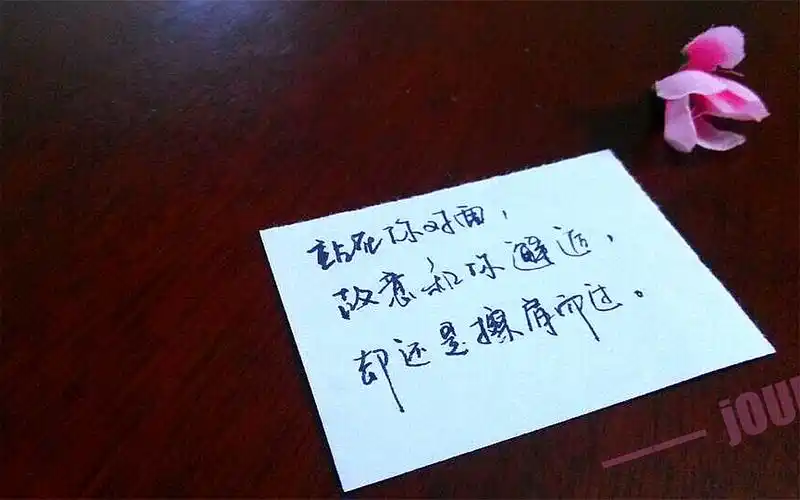 站在你对面，
故意和你邂逅，
却还是擦肩而过。
—— jou